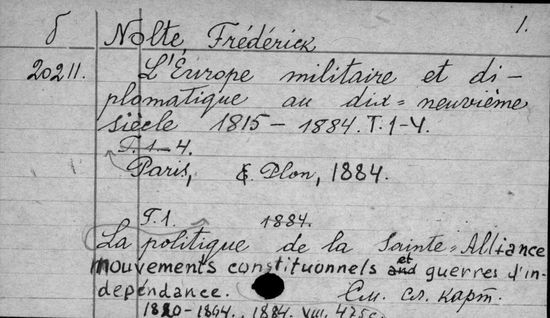 б Nolte, Frédérick 1.
20211. L'Europe militaire et di-
plomatique au dix=neuvième
siècle 1815-1884. T.1-4.
T. 1-4.
Paris, E. Plon, 1884.
T.1. 1884.
La politique de la Sainte=Alliance
mouvements constituonnels et guerres d'in-
dépendance. См. сл. карт.
1820-1844., 1884. VIII, 475c.